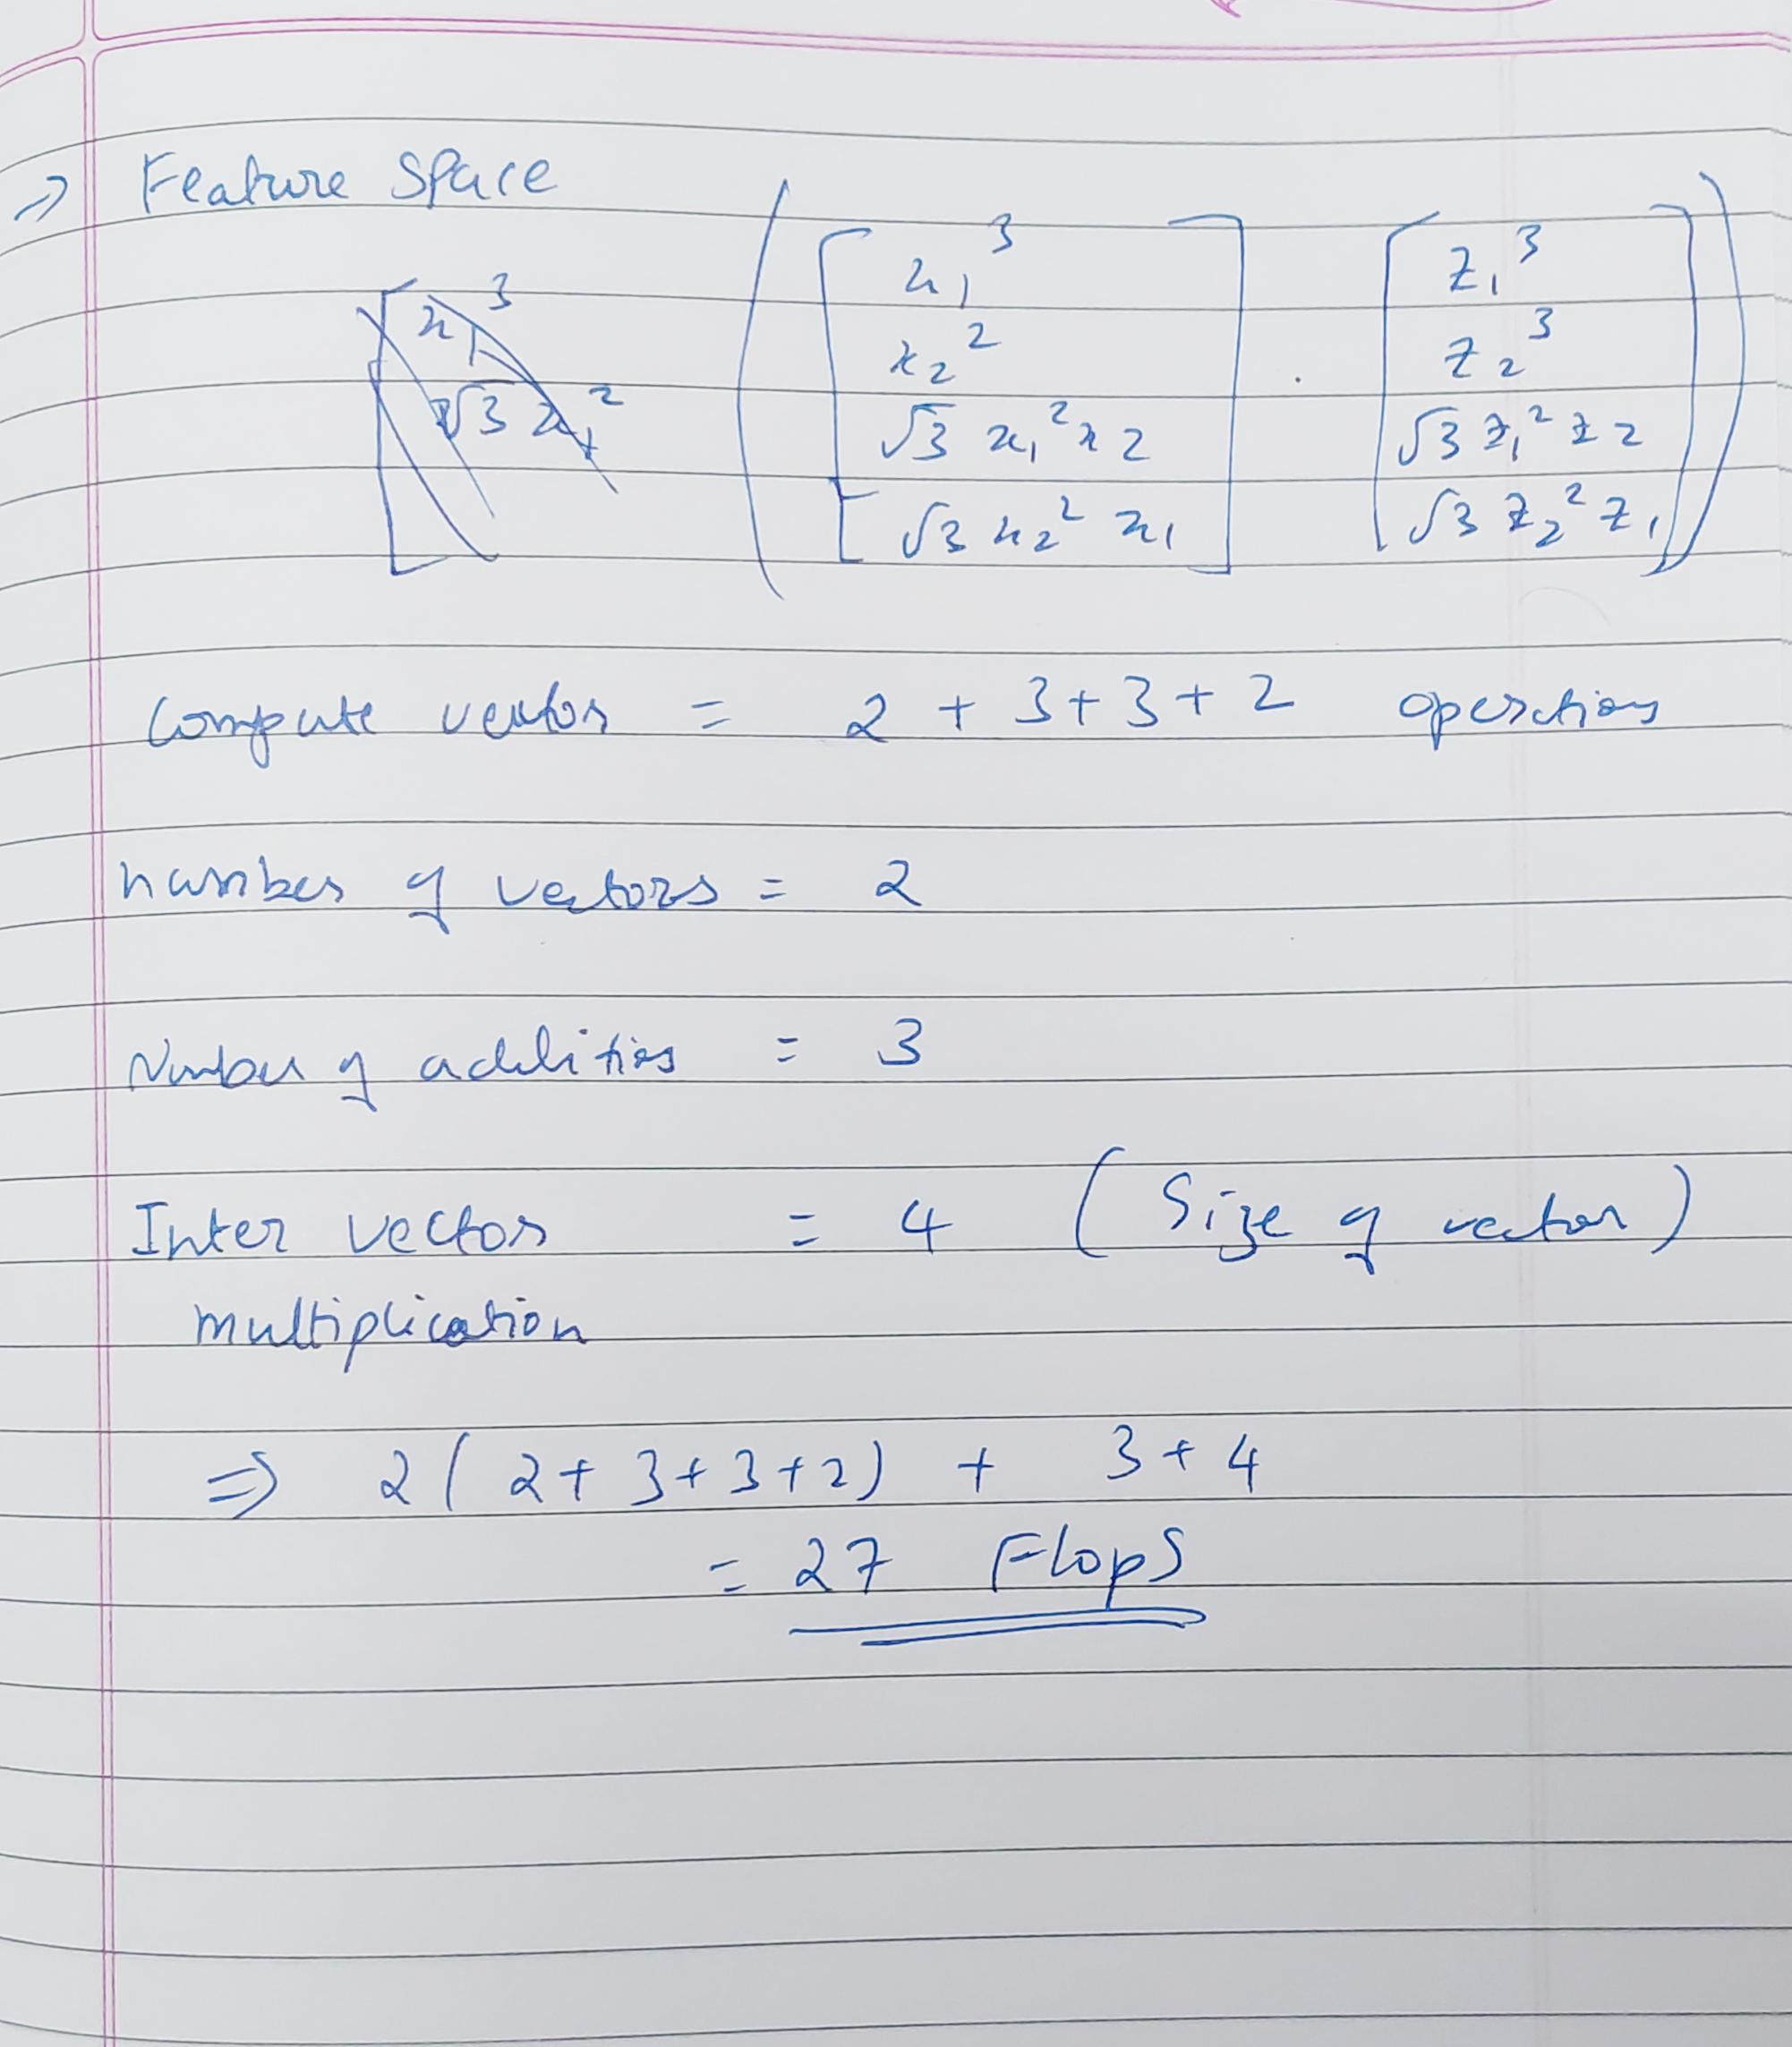 ⇒ Feature Space
x₁³
√3 x₁²
( [ x₁³
x₂²
√3 x₁² x2
√3 x₂² x₁ ] . [ z₁³
z₂³
√3 z₁² z2
√3 z₂² z₁ ] )
Compute vector = 2 + 3 + 3 + 2 operations
number of vectors = 2
Number of additions = 3
Inter vector = 4 ( Size of vector )
multiplication
⇒ 2 ( 2 + 3 + 3 + 2 ) + 3 + 4
= 27 Flops